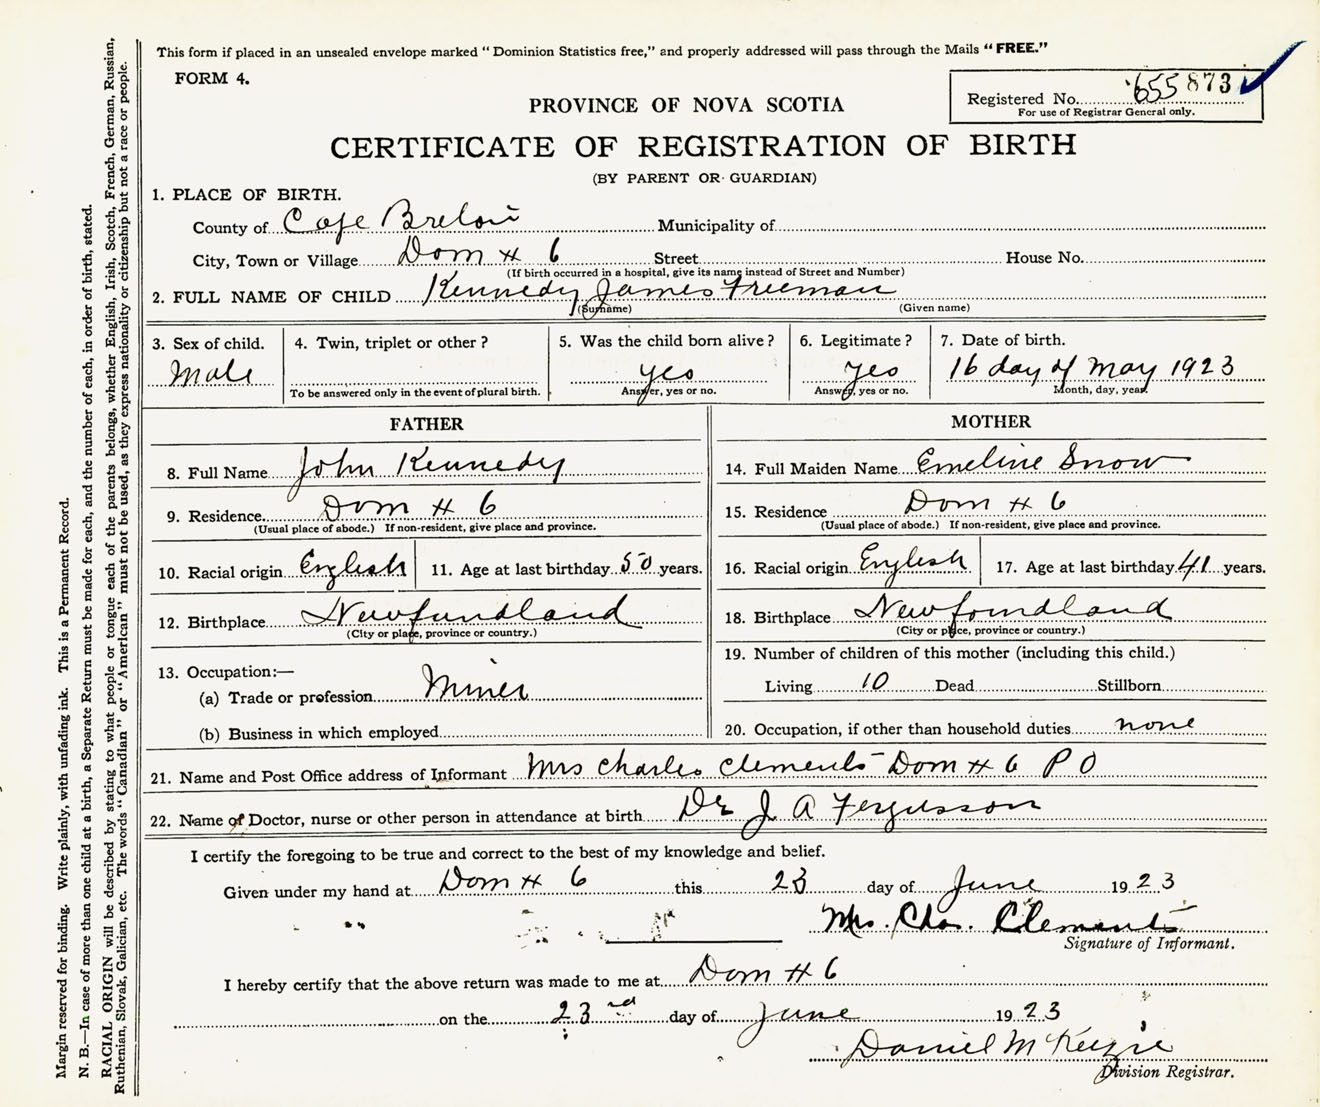 This form if placed in an unsealed envelope marked "Dominion Statistics free," and properly addressed will pass through the Mails "FREE."
FORM 4.
Registered No. 655873
For use of Registrar General only.
PROVINCE OF NOVA SCOTIA
CERTIFICATE OF REGISTRATION OF BIRTH
(BY PARENT OR GUARDIAN)
1. PLACE OF BIRTH.
County of Cape Breton Municipality of
City, Town or Village Dom # 6 Street House No.
(If birth occurred in a hospital, give its name instead of Street and Number)
2. FULL NAME OF CHILD Kennedy James Freeman
(Surname) (Given name)
3. Sex of child. 4. Twin, triplet or other? 5. Was the child born alive? 6. Legitimate? 7. Date of birth.
Male yes yes 16 day of May 1923
To be answered only in the event of plural birth. Answer, yes or no. Answer, yes or no. Month, day, year.
FATHER
8. Full Name John Kennedy
9. Residence Dom # 6
(Usual place of abode.) If non-resident, give place and province.
10. Racial origin English 11. Age at last birthday 50 years.
12. Birthplace Newfundland
(City or place, province or country.)
13. Occupation:—
(a) Trade or profession Miner
(b) Business in which employed
MOTHER
14. Full Maiden Name Emeline Snow
15. Residence Dom # 6
(Usual place of abode.) If non-resident, give place and province.
16. Racial origin English 17. Age at last birthday 41 years.
18. Birthplace Newfoundland
(City or place, province or country.)
19. Number of children of this mother (including this child.)
Living 10 Dead Stillborn
20. Occupation, if other than household duties none
21. Name and Post Office address of Informant Mrs Charles Clements Dom # 6 P O
22. Name of Doctor, nurse or other person in attendance at birth Dr J A Fergusson
I certify the foregoing to be true and correct to the best of my knowledge and belief.
Given under my hand at Dom # 6 this 23 day of June 1923
Mrs. Chas. Clements
Signature of Informant.
I hereby certify that the above return was made to me at Dom # 6
on the 23rd day of June 1923
Daniel McKenzie
Division Registrar.
Margin reserved for binding. Write plainly, with unfading ink. This is a Permanent Record.
N. B.—In case of more than one child at a birth, a Separate Return must be made for each, and the number of each, in order of birth, stated.
RACIAL ORIGIN will be described by stating to what people or tongue each of the parents belongs, whether English, Irish, Scotch, French, German, Russian,
Ruthenian, Slovak, Galician, etc. The words "Canadian" or "American" must not be used, as they express nationality or citizenship but not a race or people.